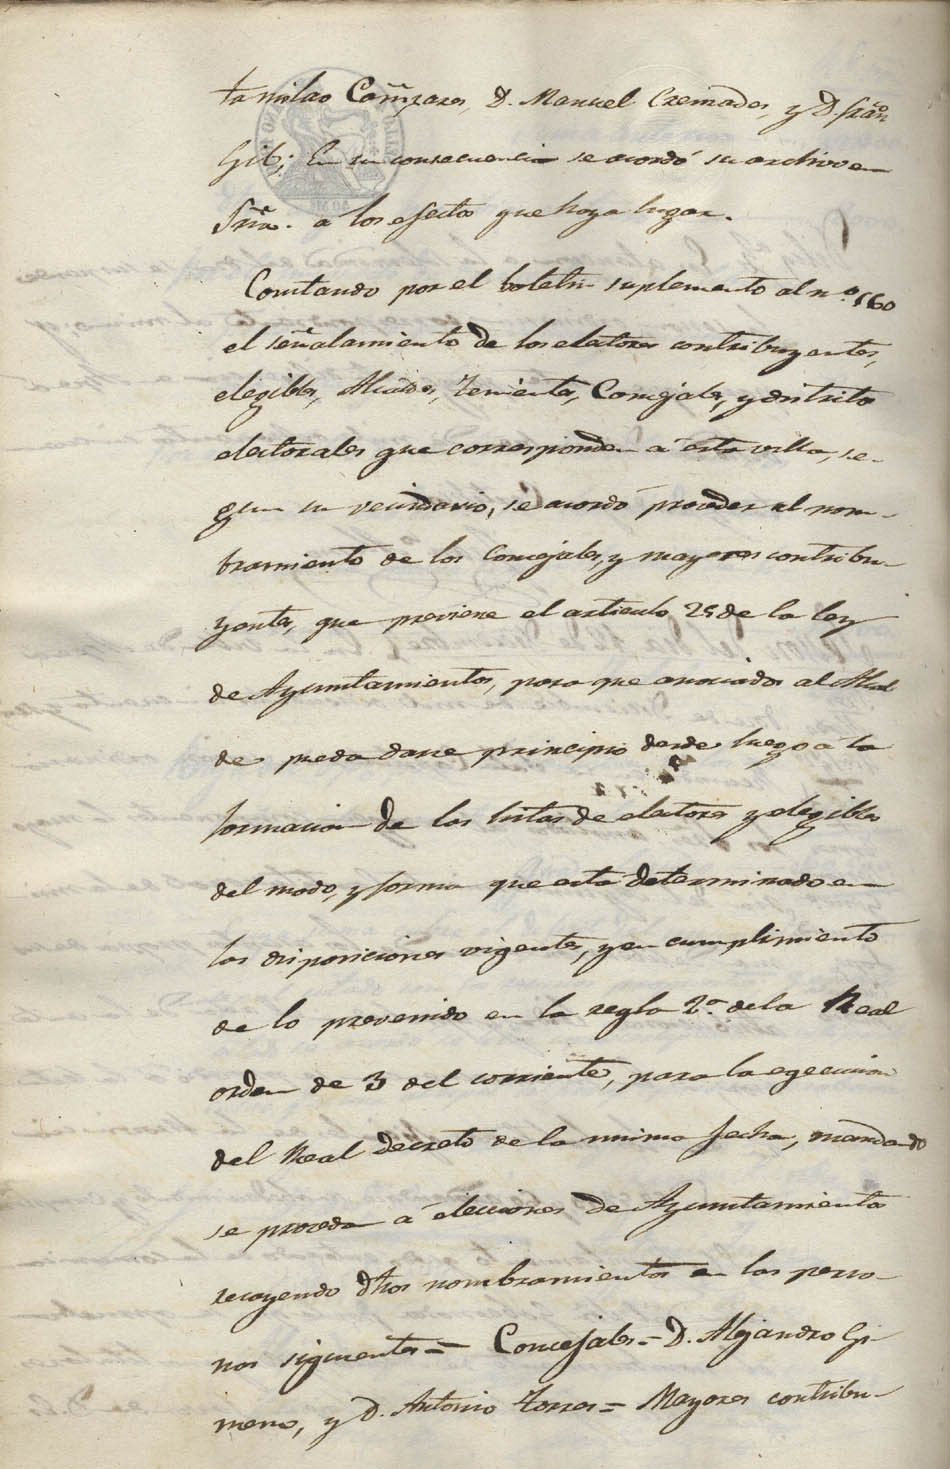 tanislao Cañizares, D. Manuel Cremades, y D. Franco
Gil; En su consecuencia se acordó su archivo en
Sria. a los efectos que haya lugar.
Constando por el boletin suplemento al n.º 160
el señalamiento de los electores contribuyentes,
elegibles, Alcaldes, Tenientes, Concejales, y distritos
electorales que corresponden á esta villa, se-
gun su vecindario, se acordó proceder al nom-
bramiento de los Concejales, y mayores contribu-
yentes, que previene el articulo 25 de la ley
de Ayuntamientos, para que asociados al Alcal
de pueda darse principio desde luego á la
formacion de las listas de electores y elegibles
del modo, y forma que está determinado en
las disposiciones vigentes, y en cumplimiento
de lo prevenido en la regla 2.ª de la Real
orden de 3 del corriente, para la egecucion
del Real decreto de la misma fecha, mandando
se proceda á elecciones de Ayuntamientos
recayendo dhos nombramientos en las perso-
nas siguientes = Concejales = D. Alejandro Gi-
meno, y D. Antonio Torres = Mayores contribu-